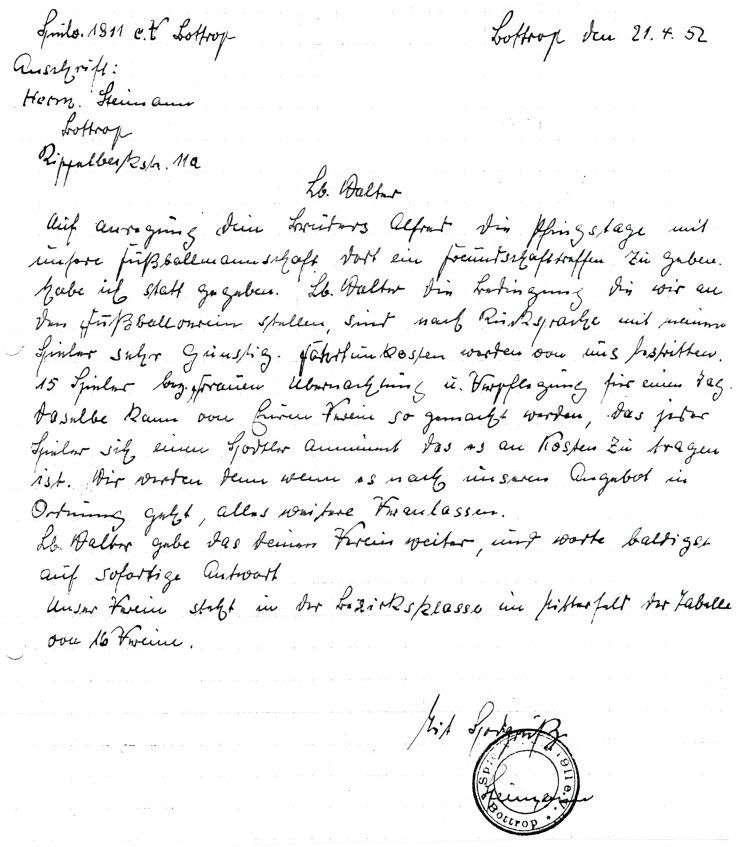 Spilv. 1911 e.V Bottrop
Bottrop den 21.4.52
Anschrift:
Herrn. Steimann
Bottrop
11a
Lb. Walter
Auf anregung dein Bruders Alfred die Pfingstage mit
unsere Fußballmannschaft dort ein Freundschaftreffen zu geben.
habe ich statt gegeben. Lb. Walter die Bedingung die wir an
den Fußballverein stellen, sind nach Rücksprache mit meinen
Spieler sehr Günstig. Fahrtunkosten werden von uns bestritten.
15 Spieler bez. Frauen Übernachtung u. Verpflegung für einen Tag.
Daselbe kann von Euren Verein so gemacht werden, das jeder
Spieler sich einen Sportler annimmt das es an Kosten zu tragen
ist. Wir werden denn wenn es nach unseren Angebot in
Ordnung geht, alles weitere Veranlassen.
Lb. Walter gebe das deinen Verein weiter, und warte baldigst
auf sofortige Antwort
Unser Verein steht in der Bezirksklasse im Mittelfeld der Tabelle
von 16 Vereine.
Mit Sportgruß
Steimann
1911 e.V. Bottrop